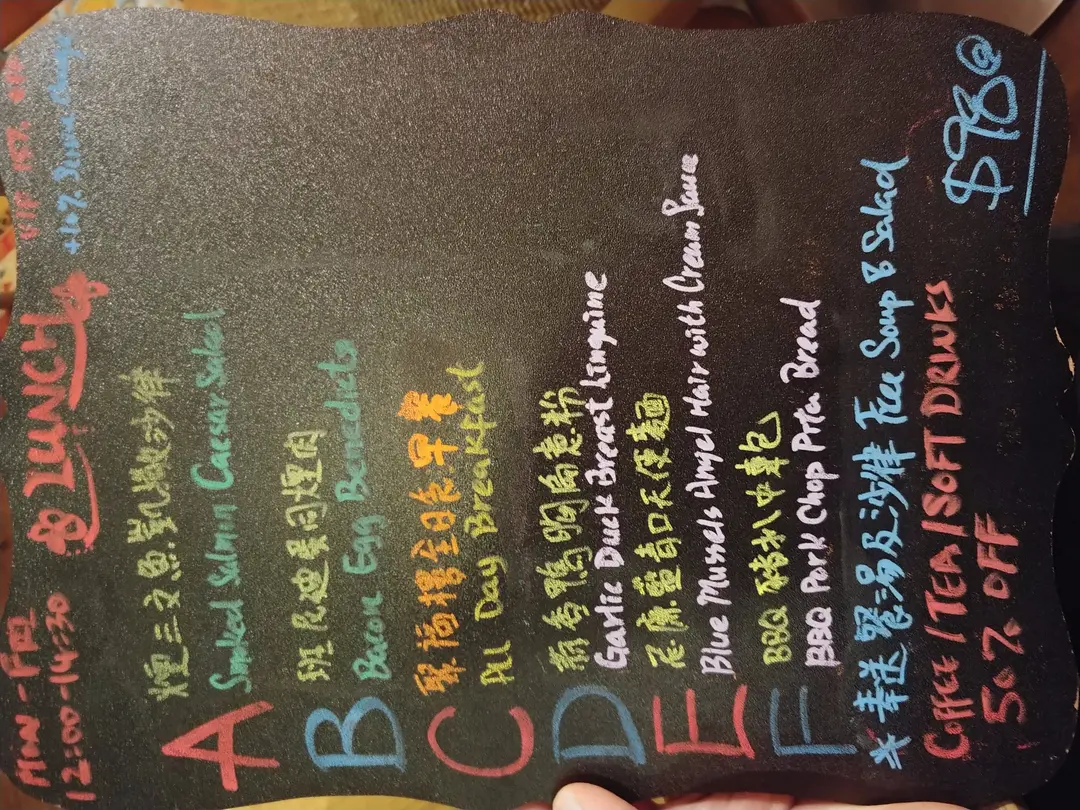 Mon - Fri
12:00-14:30
LUNCH
VIP 15% off
+10% Service Charge
A 煙三文魚凱撒沙律
Smoked Salmon Caesar Salad
B 班尼迪蛋同煙肉
Bacon Egg Benediate
C 全日早餐
All Day Breakfast
D 蒜香鴨胸扁意粉
Garlic Duck Breast Linguine
E 藍青口天使麵
Blue Mussels Angel Hair with Cream Sauce
F BBQ 豬扒中東包
BBQ Pork Chop Pita Bread
* 奉送餐湯及沙律 Free Soup & Salad
COFFEE / TEA / SOFT DRINKS
50% OFF
$98@